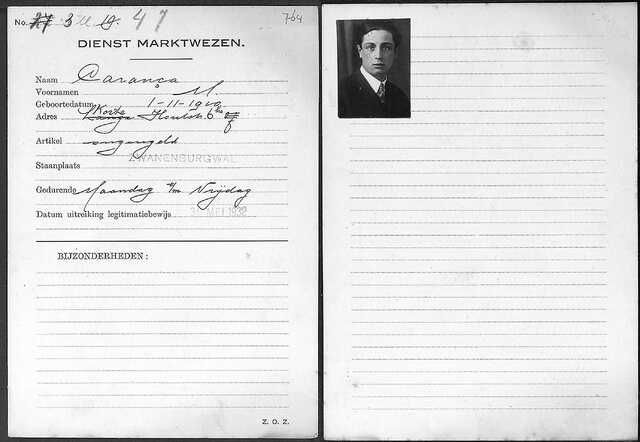 No. 3 47
764
DIENST MARKTWEZEN.
Naam Carança
Voornamen M.
Geboortedatum 1-11-1909
Adres Lange Korte Houtstr. 6
Artikel ongeregeld
Staanplaats ZWANENBURGWAL
Gedurende Maandag t/m Vrijdag
Datum uitreiking legitimatiebewijs 31 MEI 1938
BIJZONDERHEDEN:
Z. O. Z.